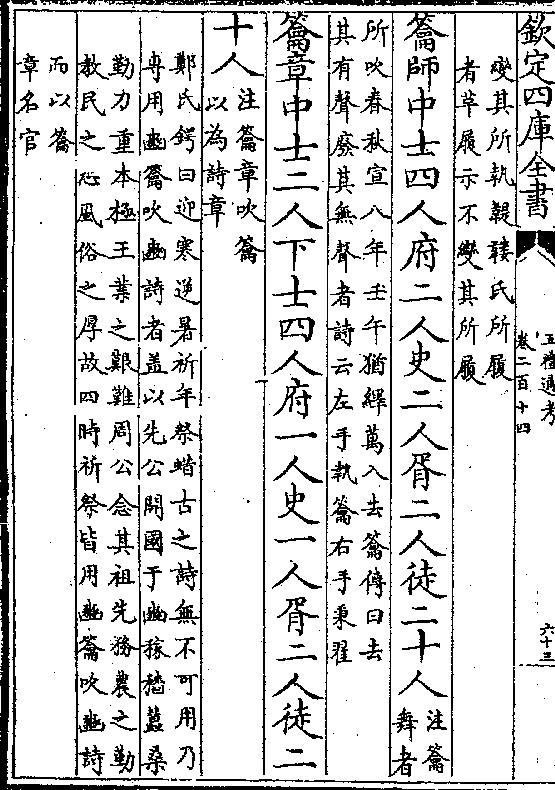 欽定四庫全書
五禮通考
卷二百十四
六十三
變其所執鞮鞻氏所履
者草履示不變其所履
籥師中士四人府二人史二人胥二人徒二十人注籥
舞者
所吹春秋宣八年壬午猶繹萬入去籥傳曰去
其有聲廢其無聲者詩云左手執籥右手秉翟
籥章中士二人下士四人府一人史一人胥二人徒二
十人注籥章吹籥
以為詩章
鄭氏鍔曰迎寒逆暑祈年祭蜡古之詩無不可用乃
専用豳籥吹豳詩者盖以先公開國于豳稼穡蠶桑
勤力重本極王業之艱難周公念其祖先務農之勤
教民之風俗之厚故四時祈祭皆用豳籥吹豳詩
而以籥
章名官